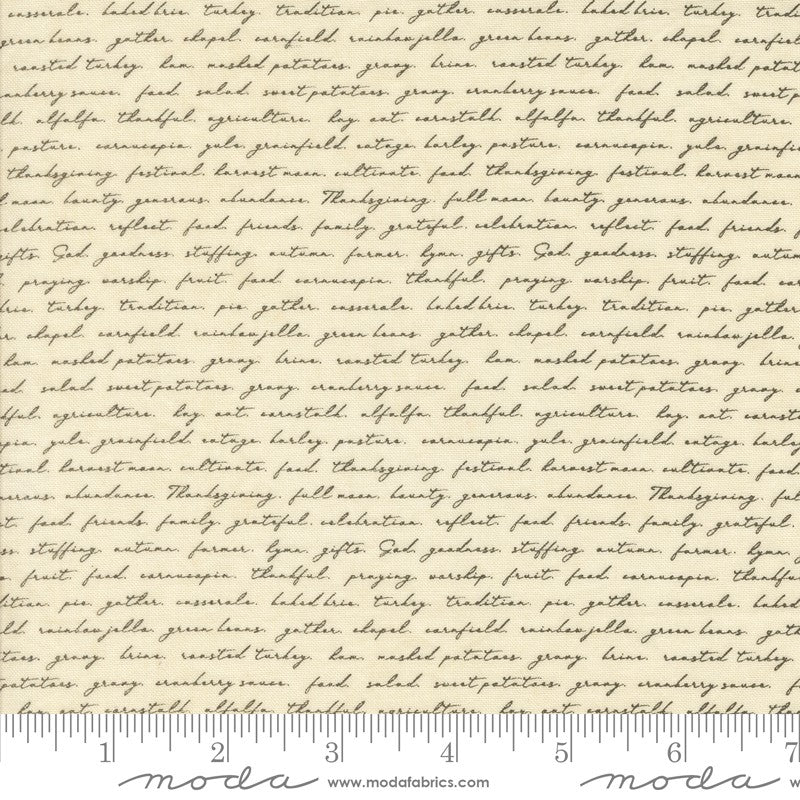 casserole. baked brie. turkey. tradition. pie. gather. casserole. baked brie. turkey.
green beans. gather. chapel. cornfield. rainbow jello. green beans. gather. chapel. cornfield
roasted turkey. ham. mashed potatoes. gravy. brine. roasted turkey. ham. mashed
cranberry sauce. food. salad. sweet potatoes. gravy. cranberry sauce. food. salad. sweet
alfalfa. thankful. agriculture. hay. oat. cornstalk. alfalfa. thankful. agriculture.
pasture. cornucopia. yule. grainfield. cotage. barley. pasture. cornucopia. yule.
thanksgiving. festival. harvest moon. cultivate. food. thanksgiving. festival. harvest moon
moon. bounty. generous. abundance. Thanksgiving. full moon. bounty. generous. abundance.
celebration. reflect. food. friends. family. grateful. celebration. reflect. food. friends.
gifts. God. goodness. stuffing. autumn. farmer. hymn. gifts. God. goodness. stuffing.
praying. worship. fruit. food. cornucopia. thankful. praying. worship. fruit. food.
turkey. tradition. pie. gather. casserole. baked brie. turkey. tradition. pie. gather
chapel. cornfield. rainbow jello. green beans. gather. chapel. cornfield. rainbow jello.
ham. mashed potatoes. gravy. brine. roasted turkey. ham. mashed potatoes. gravy. brine
salad. sweet potatoes. gravy. cranberry sauce. food. salad. sweet potatoes. gravy.
agriculture. hay. oat. cornstalk. alfalfa. thankful. agriculture. hay. oat.
yule. grainfield. cotage. barley. pasture. cornucopia. yule. grainfield. cotage. barley
harvest moon. cultivate. food. thanksgiving. festival. harvest moon. cultivate. food.
abundance. Thanksgiving. full moon. bounty. generous. abundance. Thanksgiving.
food. friends. family. grateful. celebration. reflect. food. friends. family. grateful.
stuffing. autumn. farmer. hymn. gifts. God. goodness. stuffing. autumn. farmer. hymn.
fruit. food. cornucopia. thankful. praying. worship. fruit. food. cornucopia. thankful
pie. gather. casserole. baked brie. turkey. tradition. pie. gather. casserole. baked
rainbow jello. green beans. gather. chapel. cornfield. rainbow jello. green beans.
gravy. brine. roasted turkey. ham. mashed potatoes. gravy. brine. roasted turkey.
potatoes. gravy. cranberry sauce. food. salad. sweet potatoes. gravy. cranberry sauce.
hay. oat. cornstalk. alfalfa. thankful. agriculture. hay. oat. cornstalk. alfalfa.
1 2 3 4 5 6 7
moda www.modafabrics.com moda